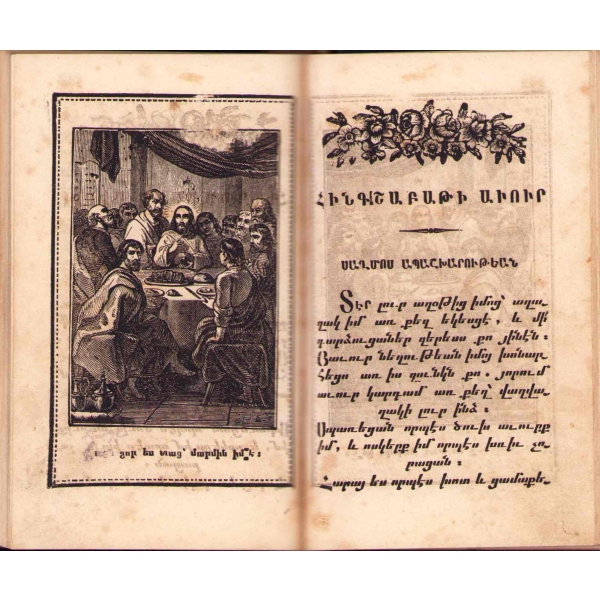 զոր ես տաց՝ մարմին իմ է։
ՀԻՆԳՇԱԲԱԹԻ ԱՒՈՒՐ
ՍԱՂՄՈՍ ԱՊԱՇԽԱՐՈՒԹԵԱՆ
Տէր լուր աղօթից իմոց՝ աղա֊
ղակ իմ առ քեզ եկեսցէ, և մի՛
դարձուցաներ զերեսս քո յինէն։
Յաւուր նեղութեան իմոյ խոնար֊
հեցո առ իս զունկն քո. յորում
աւուր կարդամ առ քեզ՝ վաղվա֊
ղակի լուր ինձ։
Սպառեցան որպէս ծուխ աւուրք
իմ, և ոսկերք իմ որպէս խռիւ չո֊
րացան։
Հարայ ես որպէս խոտ և ցամաքե֊